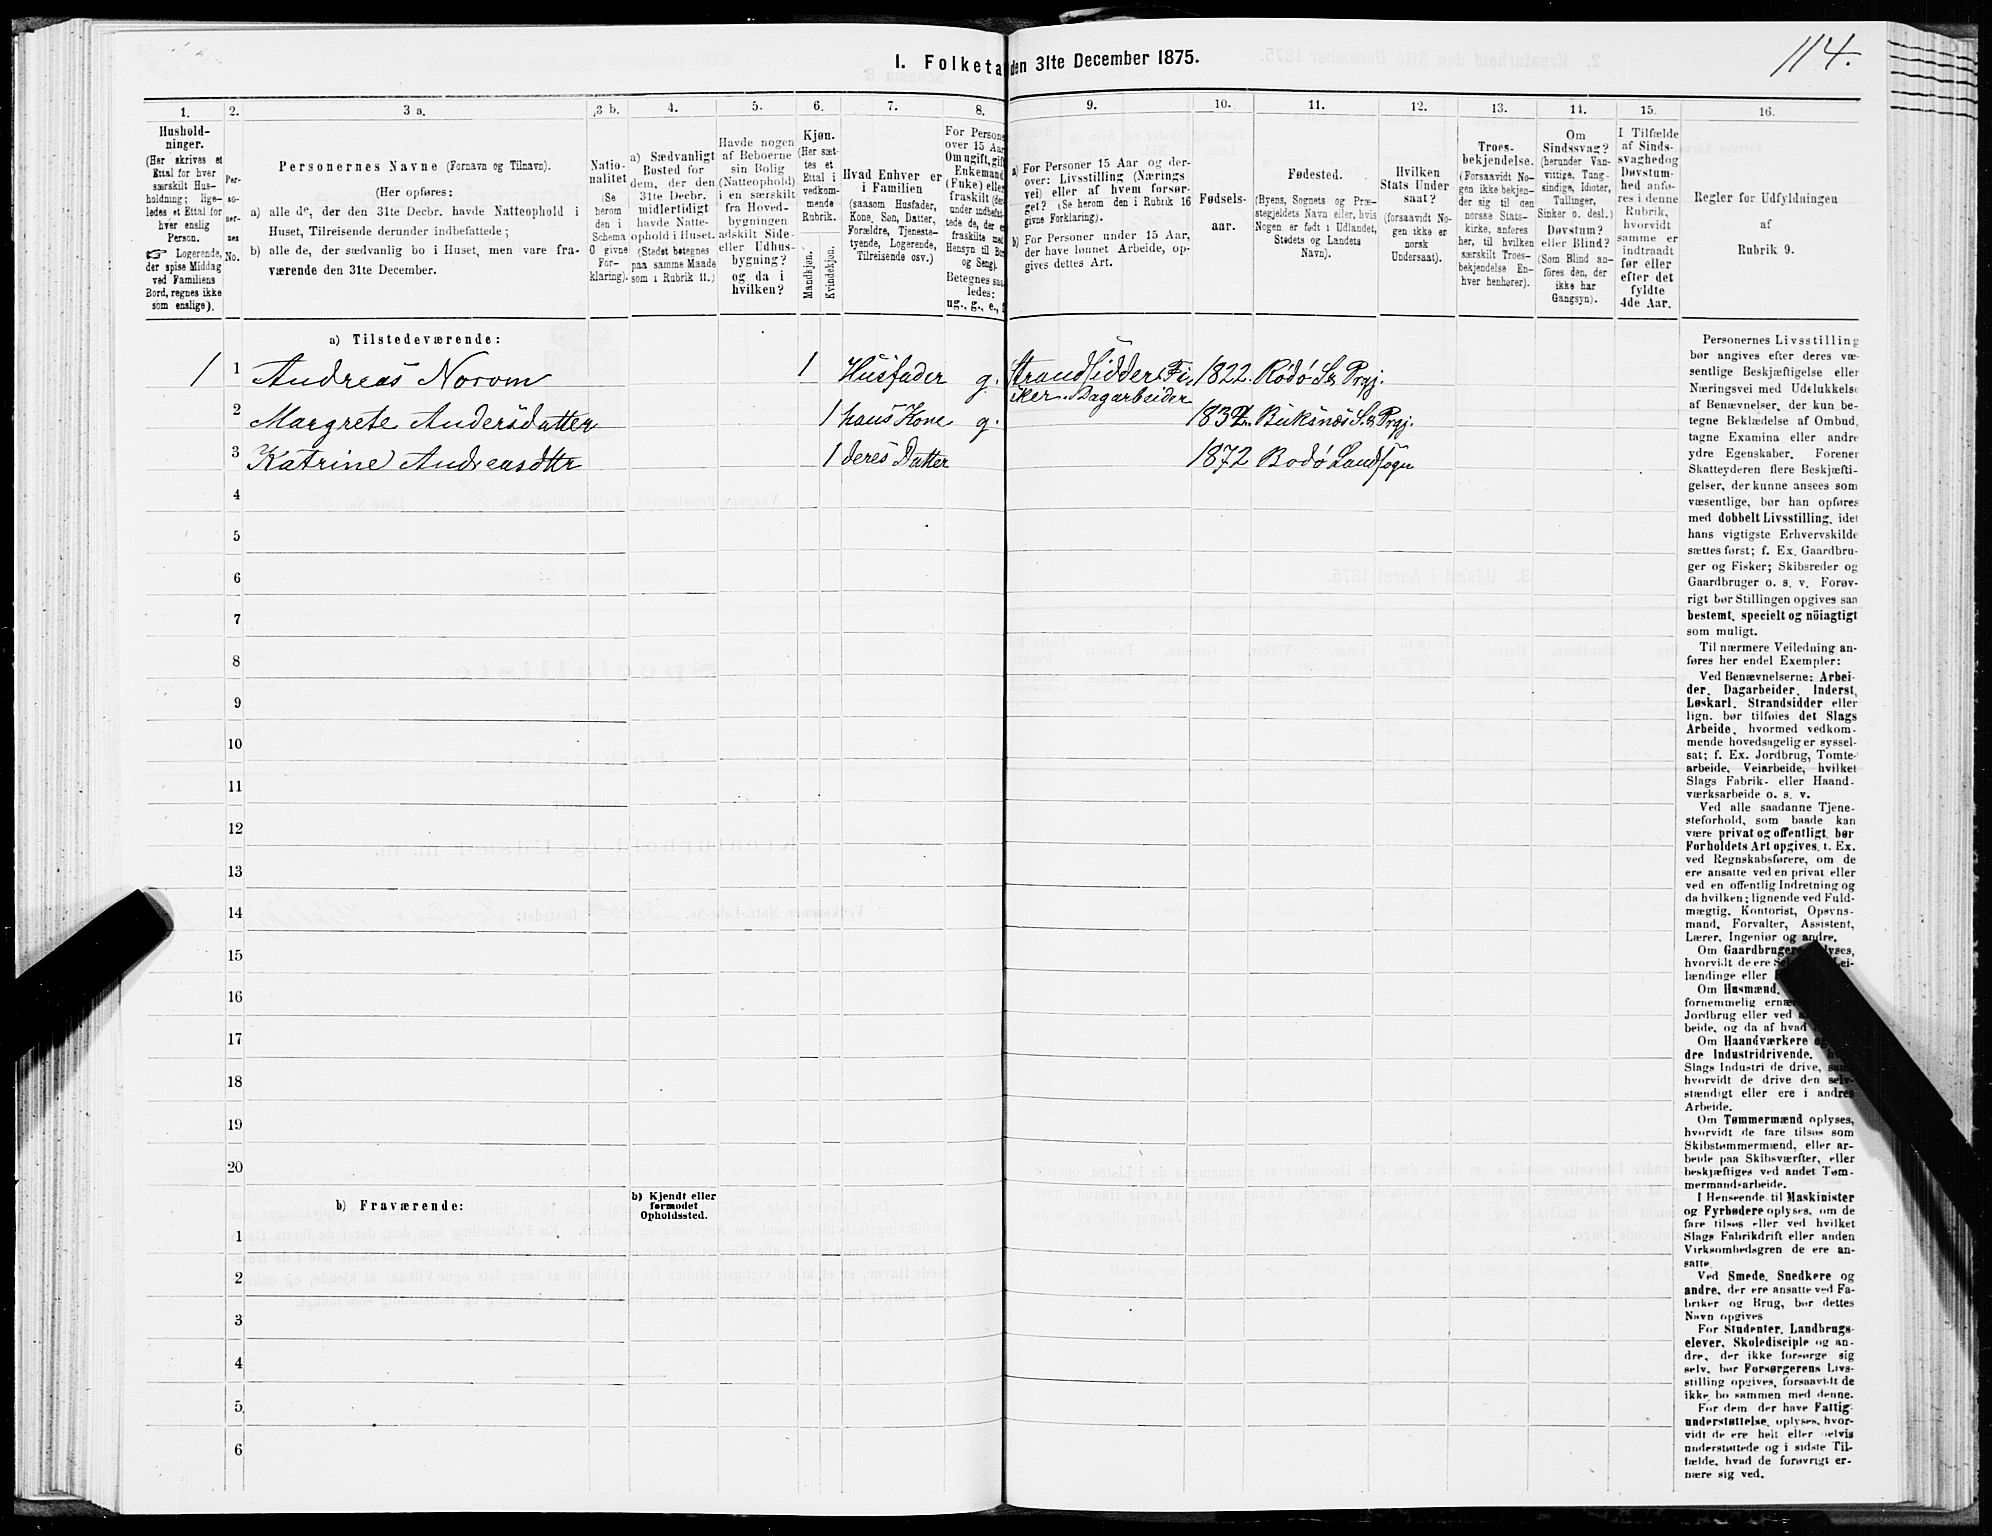 114.
I. Folketa den 31te December 1875.
1. 2. 3 a. 3 b. 4. 5. 6. 7. 8. 9. 10. 11. 12. 13. 14. 15. 16.
Hushold-
ninger.
(Her skrives et
Ettal for hver
særskilt Hus-
holdning; lige-
ledes et Ettal for
hver enslig
Person.
☞ Logerende,
der spise Middag
ved Familiens
Bord, regnes ikke
som enslige).
Per-
so-
ner-
nes
No.
Personernes Navne (Fornavn og Tilnavn).
(Her opføres:
a) alle de, der den 31te Decbr. havde Natteophold i
Huset, Tilreisende derunder indbefattede;
b) alle de, der sædvanlig bo i Huset, men vare fra-
værende den 31te December.
Natio-
nalitet
(Se
herom
den i
Schema
G givne
For-
klaring).
a) Sædvanligt
Bosted for
dem, der den
31te Decbr.
midlertidigt
havde Natte-
ophold i Huset.
(Stedet betegnes
paa samme Maade
som i Rubrik 11.)
Havde nogen
af Beboerne
sin Bolig
(Natteophold)
i en særskilt
fra Hoved-
bygningen
adskilt Side-
eller Udhus-
bygning?
og da i
hvilken?
Kjøn.
(Her sæt-
tes et
Ettal i
vedkom-
mende
Rubrik.
Mandkjøn.
Kvindekjøn.
Hvad Enhver er
i Familien
(saasom Husfader,
Kone, Søn, Datter,
Forældre, Tjeneste-
tyende, Logerende,
Tilreisende osv.)
For Persone
over 15 Aar
Om ugift, gift
Enkemand
(Fuke) eller
fraskilt (der-
under indbefat-
tede de, der er
fraskilte med
Hensyn til Bor
og Seng).
Betegnes saa
ledes:
ug., g., e.,
a) For Personer 15 Aar og der-
over: Livsstilling (Nærings
vei) eller af hvem forsør-
get? (Se herom den i Rubrik 16
givne Forklaring).
b) For Personer under 15 Aar,
der have lønnet Arbeide, op-
gives dettes Art.
Fødsels-
aar.
Fødested.
(Byens, Sognets og Præ-
stegjeldets Navn eller, hvis
Nogen er født i Udlandet,
Stedets og Landets
Navn).
Hvilken
Stats Under
saat?
(forsaavidt No-
gen ikke er
norsk
Undersaat).
Troes-
bekjendelse.
(Forsaavidt No-
gen ikke bekjen-
der sig til den
norske Stats-
kirke, anføres
her, til hvilken
særskilt Troes-
bekjendelse En-
hver henhører).
Om
Sindssvag?
(herunder Van-
vittige, Tung-
sindige, Idioter,
Tullinger,
Sinker o. desl.)
Døvstum?
eller Blind?
(Som Blind an-
føres den, der
ikke har
Gangsyn).
I Tilfælde
af Sinds-
svaghed og
Døvstum-
hed anfø-
res i denne
Rubrik,
hvorvidt
samme er
indtraadt
før eller
efter det
fyldte
4de Aar.
Regler for Udfyldningen
af
Rubrik 9.
a) Tilstedeværende:
1 1 Andreas Norom 1 Husfader g. Strandsidder. Fi- 1822. Rödö S. & Prgj.
sker. Dagarbeider
2 Margrete Andersdatter 1 hans Kone g. 1834. Buksnæs S. & Prgj.
3 Katrine Andreasdttr 1 deres Datter 1872 Bodö Landsogn
4
5
6
7
8
9
10
11
12
13
14
15
16
17
18
19
20
b) Fraværende:
b) Kjendt eller
formodet
Opholdssted.
1
2
3
4
5
6
Personernes Livsstilling
bør angives efter deres væ-
sentlige Beskjæftigelse eller
Næringsvei med Udelukkelse
af Benævnelser, der kun be-
tegne Beklædelse af Ombud,
tagne Examina eller andre
ydre Egenskaber. Forener
Skatteyderen flere Beskjæfti-
gelser, der kunne ansees som
væsentlige, bør han opføres
med dobbelt Livsstilling, idet
hans vigtigste Erhvervskilde
sættes først; f. Ex. Gaardbru-
ger og Fisker; Skibsreder og
Gaardbruger o. s. v. Forøv-
rigt bør Stillingen opgives saa
bestemt, specielt og nöiagtigt
som muligt.
Til nærmere Veiledning an-
føres her endel Exempler:
Ved Benævnelserne: Arbei-
der, Dagarbeider, Inderst,
Løskarl, Strandsidder eller
lign. bør tilføies det Slags
Arbeide, hvormed vedkom-
mende hovedsagelig er syssel-
sat; f. Ex. Jordbrug, Tomte-
arbeide, Veiarbeide, hvilket
Slags Fabrik- eller Haand-
værksarbeide o. s. v.
Ved alle saadanne Tjene-
steforhold, som baade kan
være privat og offentligt, bør
Forholdets Art opgives, t. Ex.
ved Regnskabsførere, om de
ere ansatte ved en privat eller
ved en offentlig Indretning og
da hvilken; lignende ved Fuld-
mægtig, Kontorist, Opsyns-
mand, Forvalter, Assistent,
Lærer, Ingeniør og andre.
Om Gaardbrugere oplyses,
hvorvidt de ere
lændinge eller
Om Husmænd,
fornemmelig
Jordbrug eller ved
beide, og da af hvad
Om Haandværkere
dre Industridrivende,
Slags Industri de drive, samt
hvorvidt de drive den selv-
stændigt eller ere i andres
Arbeide.
Om Tømmermænd oplyses,
hvorvidt de fare tilsøs som
Skibstømmermænd, eller ar-
beide paa Skibsværfter, eller
beskjæftiges ved andet Tøm-
mermandsarbeide.
I Henseende til Maskinister
og Fyrbødere oplyses, om de
fare tilsøs eller ved hvilket
Slags Fabrikdrift eller anden
Virksomhedsgren de ere an-
satte.
Ved Smede, Snedkere og
andre, der ere ansatte ved Fa-
briker og Brug, bør dettes
Navn opgives
For Studenter, Landbrugs-
elever, Skoledisciple og an-
dre, der ikke forsørge sig
selv, bør Forsørgerens Livs-
stilling opgives, forsaavidt de
ikke bo sammen med denne.
For dem, der have Fattig-
understøttelse, oplyses, hvor-
vidt de ere helt eller delvis
understøttede og i sidste Til-
fælde, hvad de forøvrigt er-
nære sig ved.